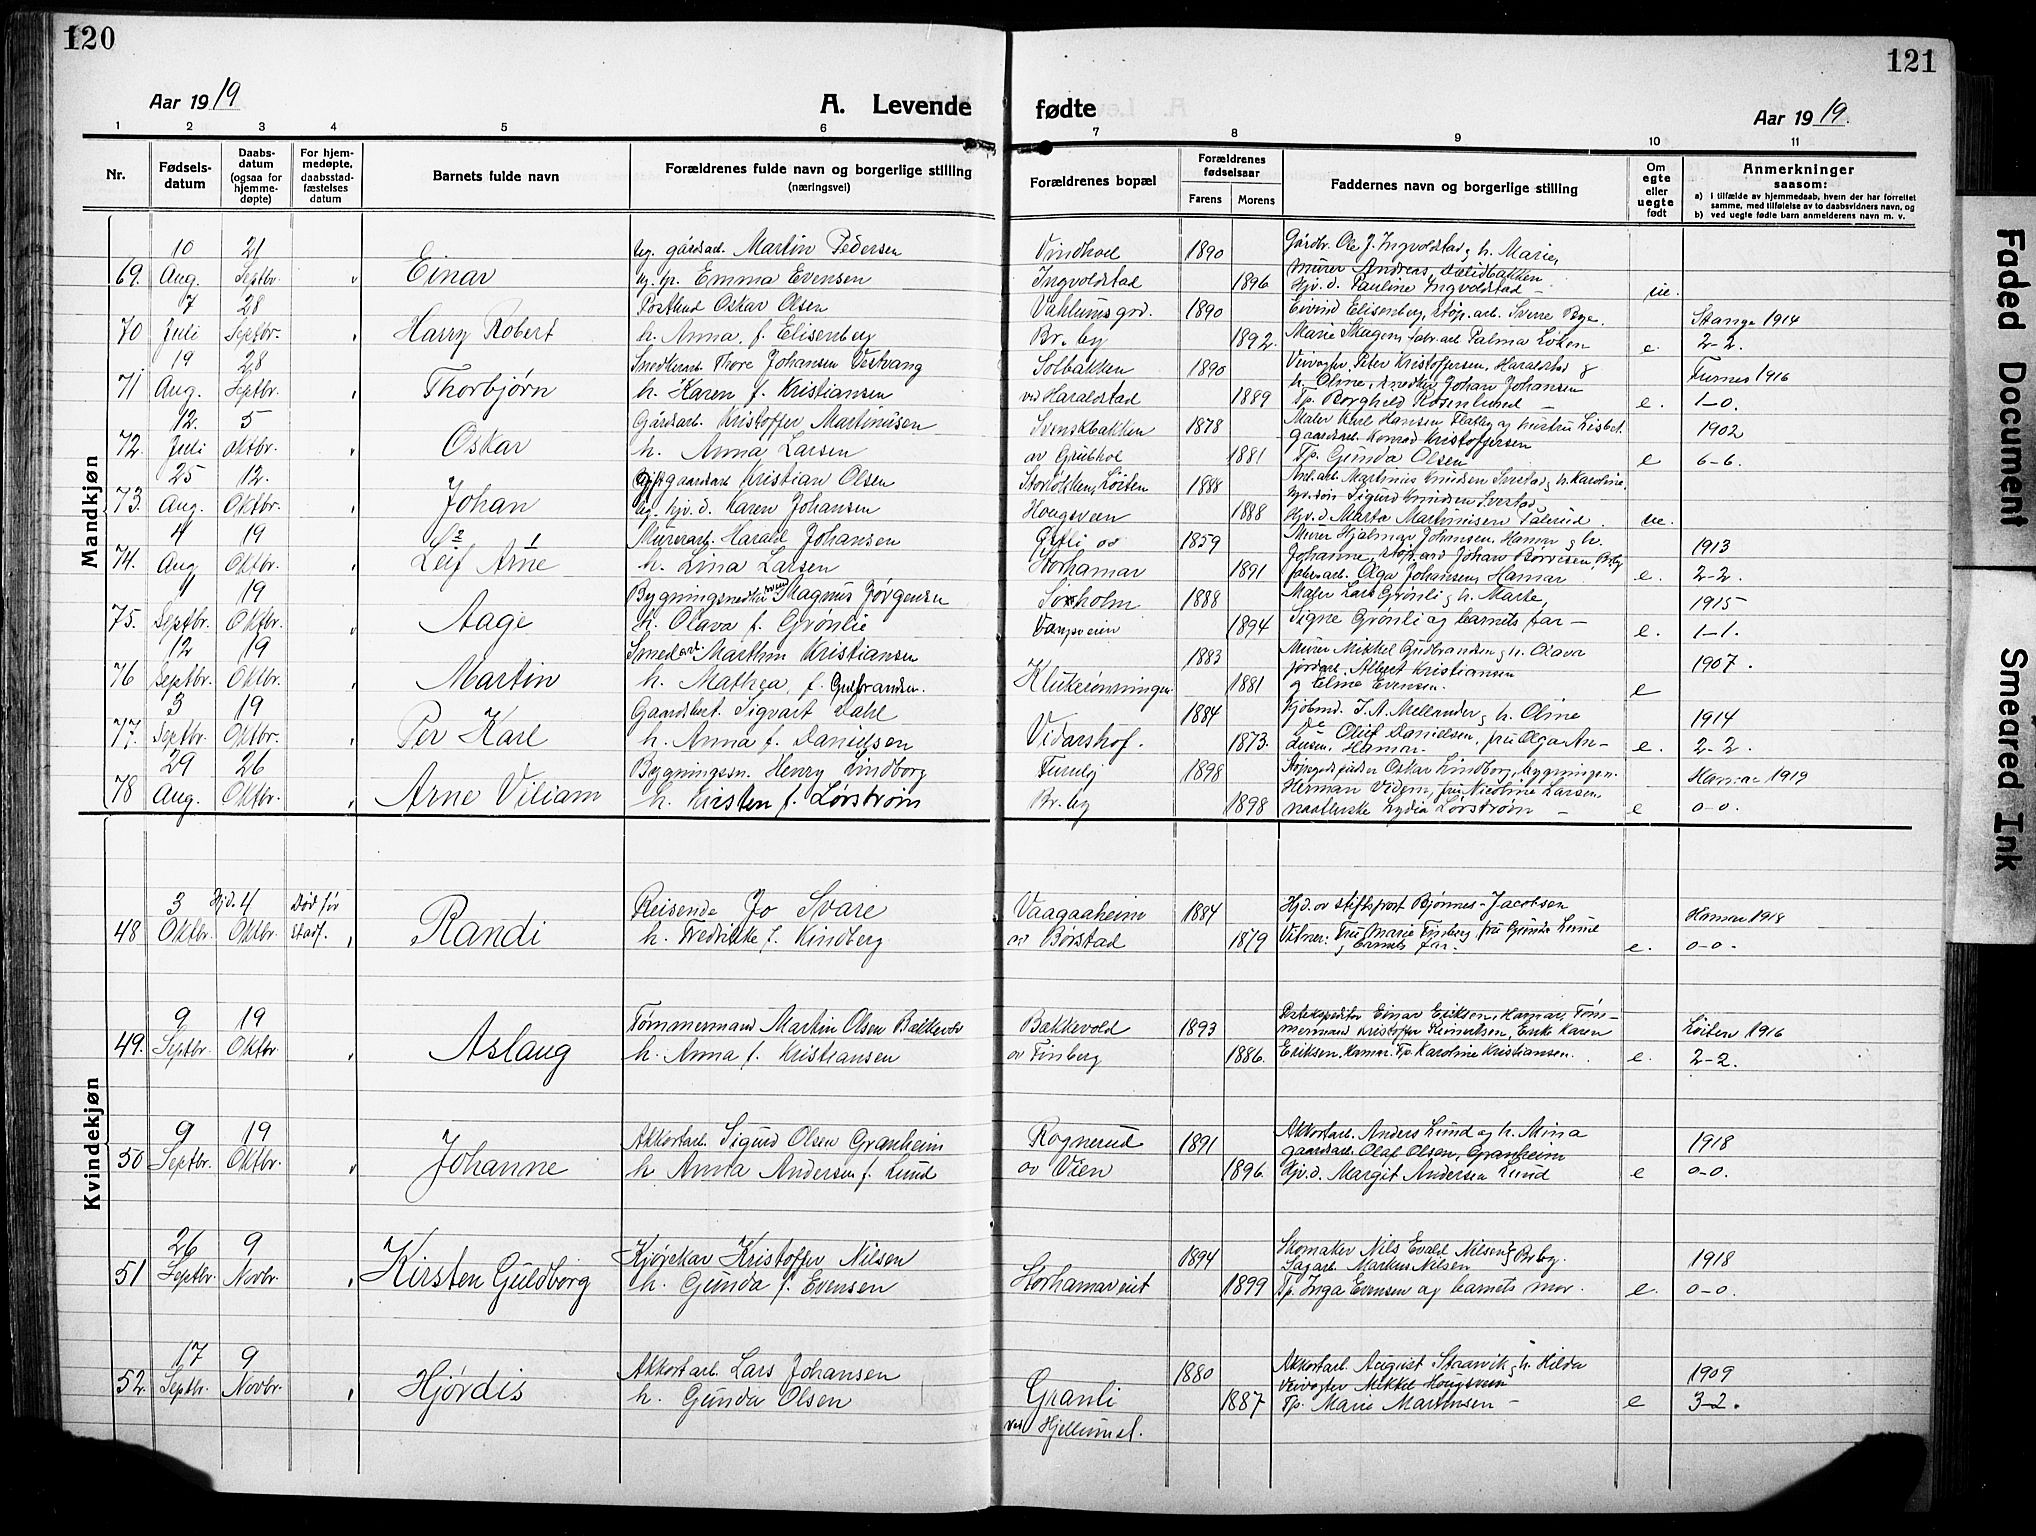 120
121
Aar 1919
A. Levende
fødte
Aar 1919.
1 2 3 4 5 6 7 8 9 10 11
Nr.
Fødsels-
datum
Daabs-
datum
(ogsaa for
hjemme-
døpte)
For hjem-
medøpte,
daabsstad-
fæstelses
datum
Barnets fulde navn
Forældrenes fulde navn og borgerlige stilling
(næringsvei)
Forældrenes bopæl
Forældrenes
fødselsaar
Farens Morens
Faddernes navn og borgerlige stilling
Om
egte
eller
uegte
født
Anmerkninger
saasom:
a) i tilfælde av hjemmedaab, hvem der har forrettet
samme, med tilføielse av to daabsvidners navn, og
b) ved uegte fødte barn anmelderens navn m. v.
Mandkjøn
10 21 gårdsarb. Martin Pedersen Vindhol 1890 Gårdbr. Ole J. Ingvoldstad, h. Marie,
69. Aug. Septbr. Einar Emma Evensen Ingvoldstad 1896 Murer Andreas
Hjv. d. Pauline Ingvoldstad – ue.
7 28 Oskar Olsen 1890 Eivind Elisenberg, støp.arb. Sverre Bye. Stange 1914
70 Juli Septbr. Harry Robert h. Anna f. Elisenberg Br. by 1892. Marie Skagen, fabr.arb. Palma Løken e. 2-2.
19 28 Snedkerarb. Thore Johansen Vestvang Solbakken 1890 Veivogter Peter Kristoffersen, Haraldstad & Furnes 1916
71 Aug. Septbr. Thorbjørn h. Karen f. Kristiansen ved Haraldstad 1889 h. Oline, snedker Johan Johansen
Tp. Borghild Rosenlund – e. 1-0.
12. 5 Gårdsarb. Kristoffer Martinusen Svenskbakken 1878 Maler Karl Hansen og hustru Lisbet. 1902
72. Juli Oktbr. Oskar h. Anna Larsen av Grubhol 1881 gaardsarb. Konrad Kristoffersen
Tp. Gunda Olsen e 6-6.
25 12. gaardsarb. Kristian Olsen Løiten 1888 Martinius Knudsen h. Karoline,
73. Aug. Oktbr. Johan hjv. d. Karen Johansen Hougsveen 1888 Sigurd Knudsen
Hjv. d. Marta Martinusen ue.
4 19 2 1 Murerarb. Harald Johansen Østli av 1859 Murer Hjalmar Johansen, Hamar og h. 1913
74. Aug Oktbr. Leif Arne h. Lina Larsen Storhamar 1891 Johanne, støp. arb Johan Børresen, Br.by
fabr.arb. Olga Johansen, Hamar e. 2-2.
19 Magnus Jørgensen Solholm 1888 Maler Lars Grønli, h. Marte, 1915
75. Septbr. Oktbr. Aage h. Olava f. Grønlie Vangsveien 1894 Signe Grønli og barnets far – e. 1-1.
12 19 Smedarb. Marthin Kristiansen 1883 Murer Mikkel Gudbrandsen, h. Olava 1907.
76 Septbr. Oktbr. Martin h. Mathea, f. Gulbrandsen. Klukerønningen 1881 jordarb. Albert Kristiansen
og Eline Evensen. e
3 19 Sigvart Dahl 1884 Kjøbmd. J. A. Mellander, h. Oline 1914
77. Septbr. Oktbr. Per Karl h. Anna f. Danielsen Vidarshof. 1873. Oluf Danielsen, fru Olga An-
dersen, Hamar – e. 2-2.
29 26 Bygningssn. Henry Lindborg Furuly 1898 Oskar Lindborg, bygningssn. Hamar 1919
78 Aug. Oktbr. Arne Viliam h. Kirsten f. Lørstrøm Br.by 1898 Herman Videm, fru Nicoline Larsen,
Lydia Lørstrøm – e 0-0.
Kvindekjøn
3 Hjd. 4 Død før Reisende Jo Svare Vaagaaheim 1884 Hjd. av stiftsprost Bjønnes-Jacobsen Hamar 1918
48 Oktbr. Oktbr. stadf. Randi h. Fredrikke f. Kindberg av Børstad 1879 Vitner: Fru Marie Finberg, fru Gunda Lund
barnets far. e. 0-0.
9 19 Tømmermand Martin Olsen Bækkevold Bækkevold 1893 Postekspeditør Einar Eriksen, Hamar, Tøm- Løiten 1916
49. Septbr. Oktbr Aslaug h. Anna f. Kristiansen av Finberg 1886. mermand Kristoffer Karen
Eriksen, Hamar. Tp. Karoline Kristiansen. e. 2-2.
9 19 Akkortarb. Sigurd Olsen Granheim Rognerud 1891 Akkortarb. Anders Lund og h. Mina 1918
50 Septbr. Oktbr. Johanne h Anna Andersen f. Lund av Vien 1896. gaardsarb. Olaf Olsen, Granheim
Hjv. d. Margit Andersen Lund e 0-0.
26 9 Kjørekar Kristoffer Nilsen 1894 Skomaker Nils Evald Nilsen, Br.by. 1918
51 Septbr. Novbr. Kirsten Guldborg h. Gunda f. Evensen Storhamar eiet 1899 Sagarb. Markus Nilsen
Tp. Inga Evensen og barnets mor. e. 0-0.
17 9 Akkortarb. Lars Johansen 1880 Akkortarb. August h. Hilda 1909
52. Septbr. Novbr. Hjørdis h. Gunda Olsen Granli 1887 Veivogter Mikkel Hougsveen
Tp. Marie Martinsen – e 3-2.
ved Hjellum st.
Faded Document
Smeared Ink